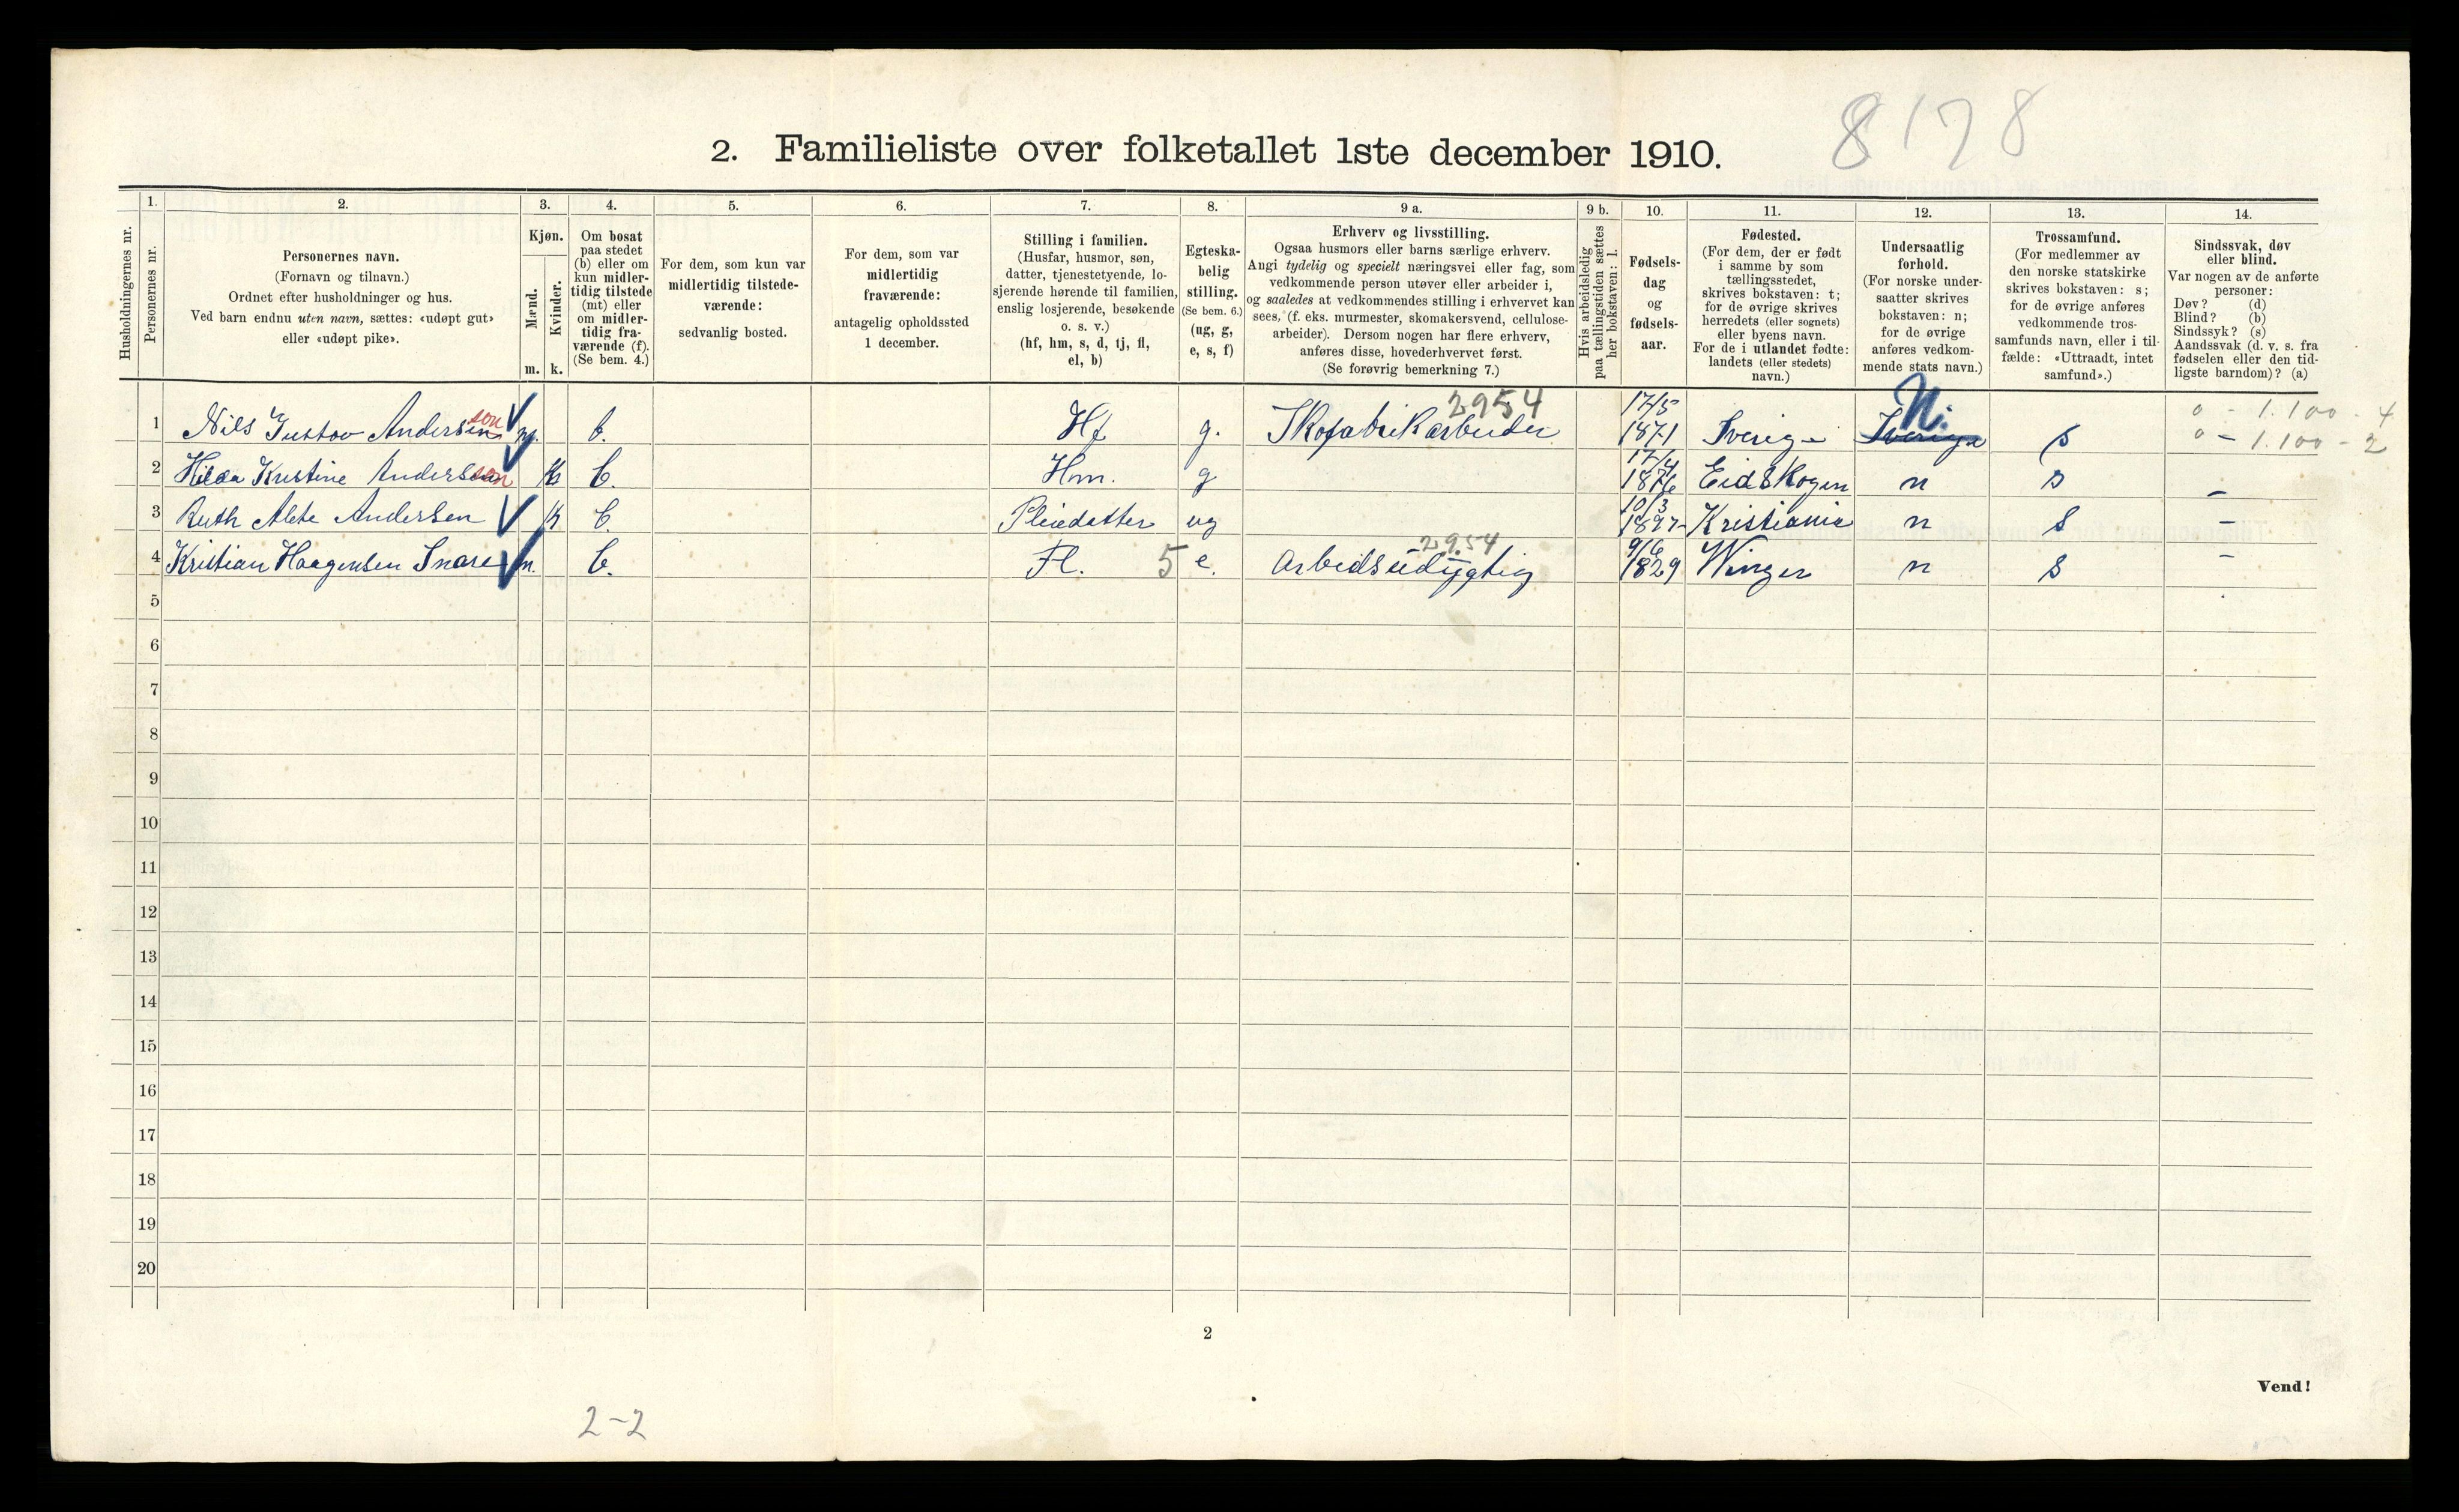 8178
2. Familieliste over folketallet 1ste december 1910.
Husholdningernes nr.
1. Personernes nr.
2. Personernes navn.
(Fornavn og tilnavn.)
Ordnet efter husholdninger og hus.
Ved barn endnu uten navn, sættes: «udøpt gut»
eller «udøpt pike».
3. Kjøn.
Mænd. m.
Kvinder. k.
4. Om bosat
paa stedet
(b) eller om
kun midler-
tidig tilstede
(mt) eller
om midler-
tidig fra-
værende (f).
(Se bem. 4.)
5. For dem, som kun var
midlertidig tilstede-
værende:
sedvanlig bosted.
6. For dem, som var
midlertidig
fraværende:
antagelig opholdssted
1 december.
7. Stilling i familien.
(Husfar, husmor, søn,
datter, tjenestetyende, lo-
sjerende hørende til familien,
enslig losjerende, besøkende
o. s. v.)
(hf, hm, s, d, tj, fl,
el, b)
8. Egteska-
belig
stilling.
(Se bem. 6.)
(ug, g,
e, s, f)
9 a. Erhverv og livsstilling.
Ogsaa husmors eller barns særlige erhverv.
Angi tydelig og specielt næringsvei eller fag, som
vedkommende person utøver eller arbeider i,
og saaledes at vedkommendes stilling i erhvervet kan
sees, (f. eks. murmester, skomakersvend, cellulose-
arbeider). Dersom nogen har flere erhverv,
anføres disse, hovederhvervet først.
(Se forøvrig bemerkning 7.)
9 b. Hvis arbeidsledig
paa tællingstiden sættes
her bokstaven: l.
10. Fødsels-
dag
og
fødsels-
aar.
11. Fødested.
(For dem, der er født
i samme by som
tællingsstedet,
skrives bokstaven: t;
for de øvrige skrives
herredets (eller sognets)
eller byens navn.
For de i utlandet fødte:
landets (eller stedets)
navn.)
12. Undersaatlig
forhold.
(For norske under-
saatter skrives
bokstaven: n;
for de øvrige
anføres vedkom-
mende stats navn.)
13. Trossamfund.
(For medlemmer av
den norske statskirke
skrives bokstaven: s;
for de øvrige anføres
vedkommende tros-
samfunds navn, eller i til-
fælde: «Uttraadt, intet
samfund».)
14. Sindssvak, døv
eller blind.
Var nogen av de anførte
personer:
Døv? (d)
Blind? (b)
Sindssyk? (s)
Aandssvak (d. v. s. fra
fødselen eller den tid-
ligste barndom)? (a)
1 Nils Gustav Andersen son m. b. Hf g. Skofabrikarbeider 2954 17/5 1871 Sverige Sverige N. s 0 - 1.100 - 4
0 - 1.100 - 2
2 Hilda Kristine Andersen son k b. Hm. g 17/4 1876 Eidskogen n s –
3 Ruth Alete Andersen k b. Pleiedatter ug 10/3 1897 Kristiania n s –
4 Kristian Haagensen Snare m. b. Fl. 5 e. Arbeidsudygtig 2954 9/6 1829 Winger n s –
5
6
7
8
9
10
11
12
13
14
15
16
17
18
19
20
2
Vend!
2-2